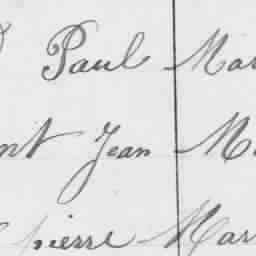 Paul Mar
nt Jean Ma
pierre Mar